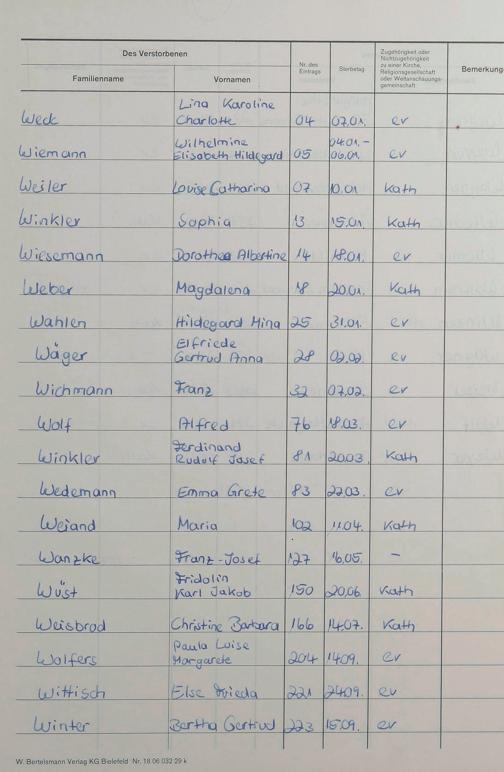 Des Verstorbenen
Familienname Vornamen Nr. des Eintrags Sterbetag Zugehörigkeit oder Nichtzugehörigkeit zu einer Kirche, Religionsgesellschaft oder Weltanschauungsgemeinschaft Bemerkung
Lina Karoline
Weck Charlotte 04 07.01. ev
Wilhelmine 04.01.-
Wiemann Elisabeth Hildegard 05 06.01. ev
Weiler Louise Catharina 07 10.01 Kath
Winkler Sophia 13 15.01. Kath
Wiesemann Dorothea Albertine 14 18.01. ev
Weber Magdalena 18 20.01. Kath
Wahlen Hildegard Mina 25 31.01. ev
Elfriede
Wäger Gertrud Anna 28 02.02. ev
Wichmann Franz 32 07.02. ev
Wolf Alfred 76 18.03. ev
Ferdinand
Winkler Rudolf Josef 81 20.03. Kath
Wedemann Emma Grete 83 22.03. ev
Weiand Maria 102 11.04. Kath
Wanzke Franz-Josef 127 16.05. –
Fridolin
Wüst Karl Jakob 150 20.06. Kath
Weisbrod Christine Barbara 166 14.07. Kath
Paula Luise
Wolfers Margarete 204 14.09. ev
Wittisch Else Frieda 221 24.09. ev
Winter Bertha Gertrud 223 15.09. ev
W. Bertelsmann Verlag KG Bielefeld Nr. 18 06 032 29 k